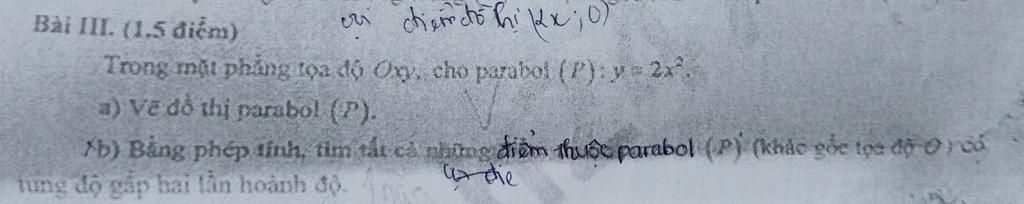 điểm đồ thị (2x; 0)
Bài III. (1.5 điểm)
Trong mặt phẳng tọa độ Oxy, cho parabol (P): y = 2x².
a) Vẽ đồ thị parabol (P).
b) Bằng phép tính, tìm tất cả những điểm thuộc parabol (P) (khác gốc tọa độ O) có
tung độ gấp hai lần hoành độ.